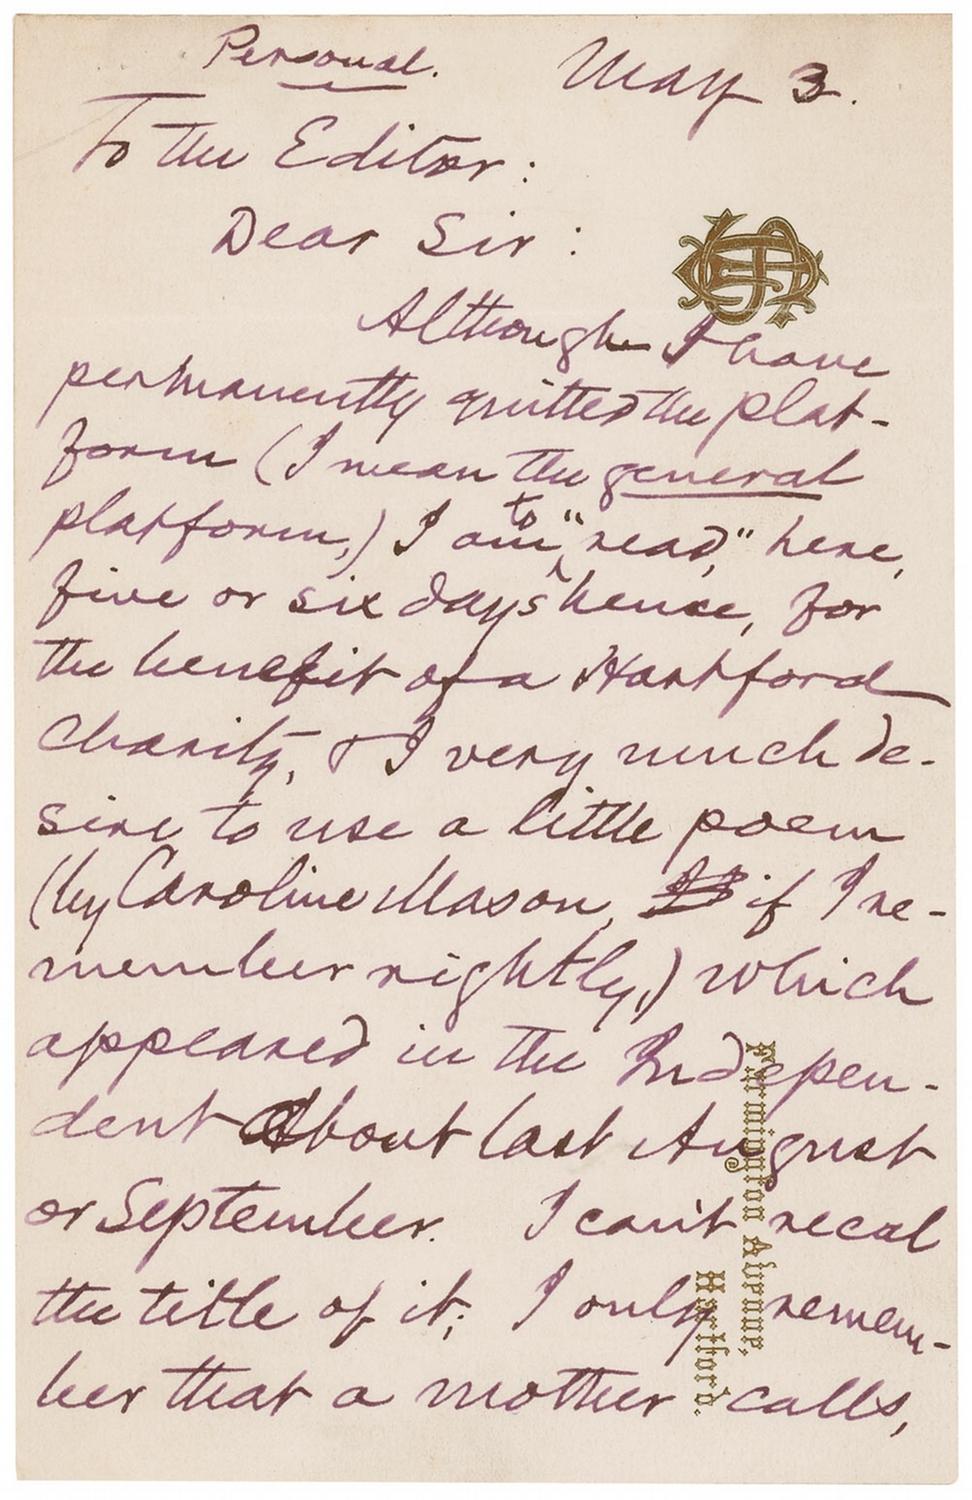 Personal. May 3.
To the Editor:
Dear Sir:
Although I have
permanently quitted the plat-
form (I mean the general
platform,) I am to "read," here,
five or six days hence, for
the benefit of a Hartford
charity, & I very much de-
sire to use a little poem
(by Caroline Mason, if I re-
member rightly,) which
appeared in the Indepen-
dent about last August
or September. I can't recal
the title of it; I only remem-
ber that a mother calls,
Farmington Avenue,
Hartford.